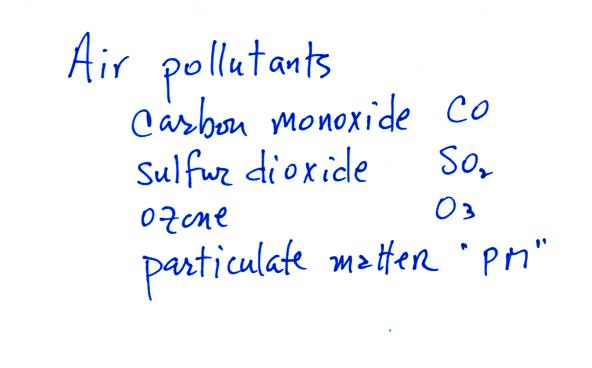 Air pollutants
Carbon monoxide CO
sulfur dioxide SO₂
ozone O3
particulate matter "PM"